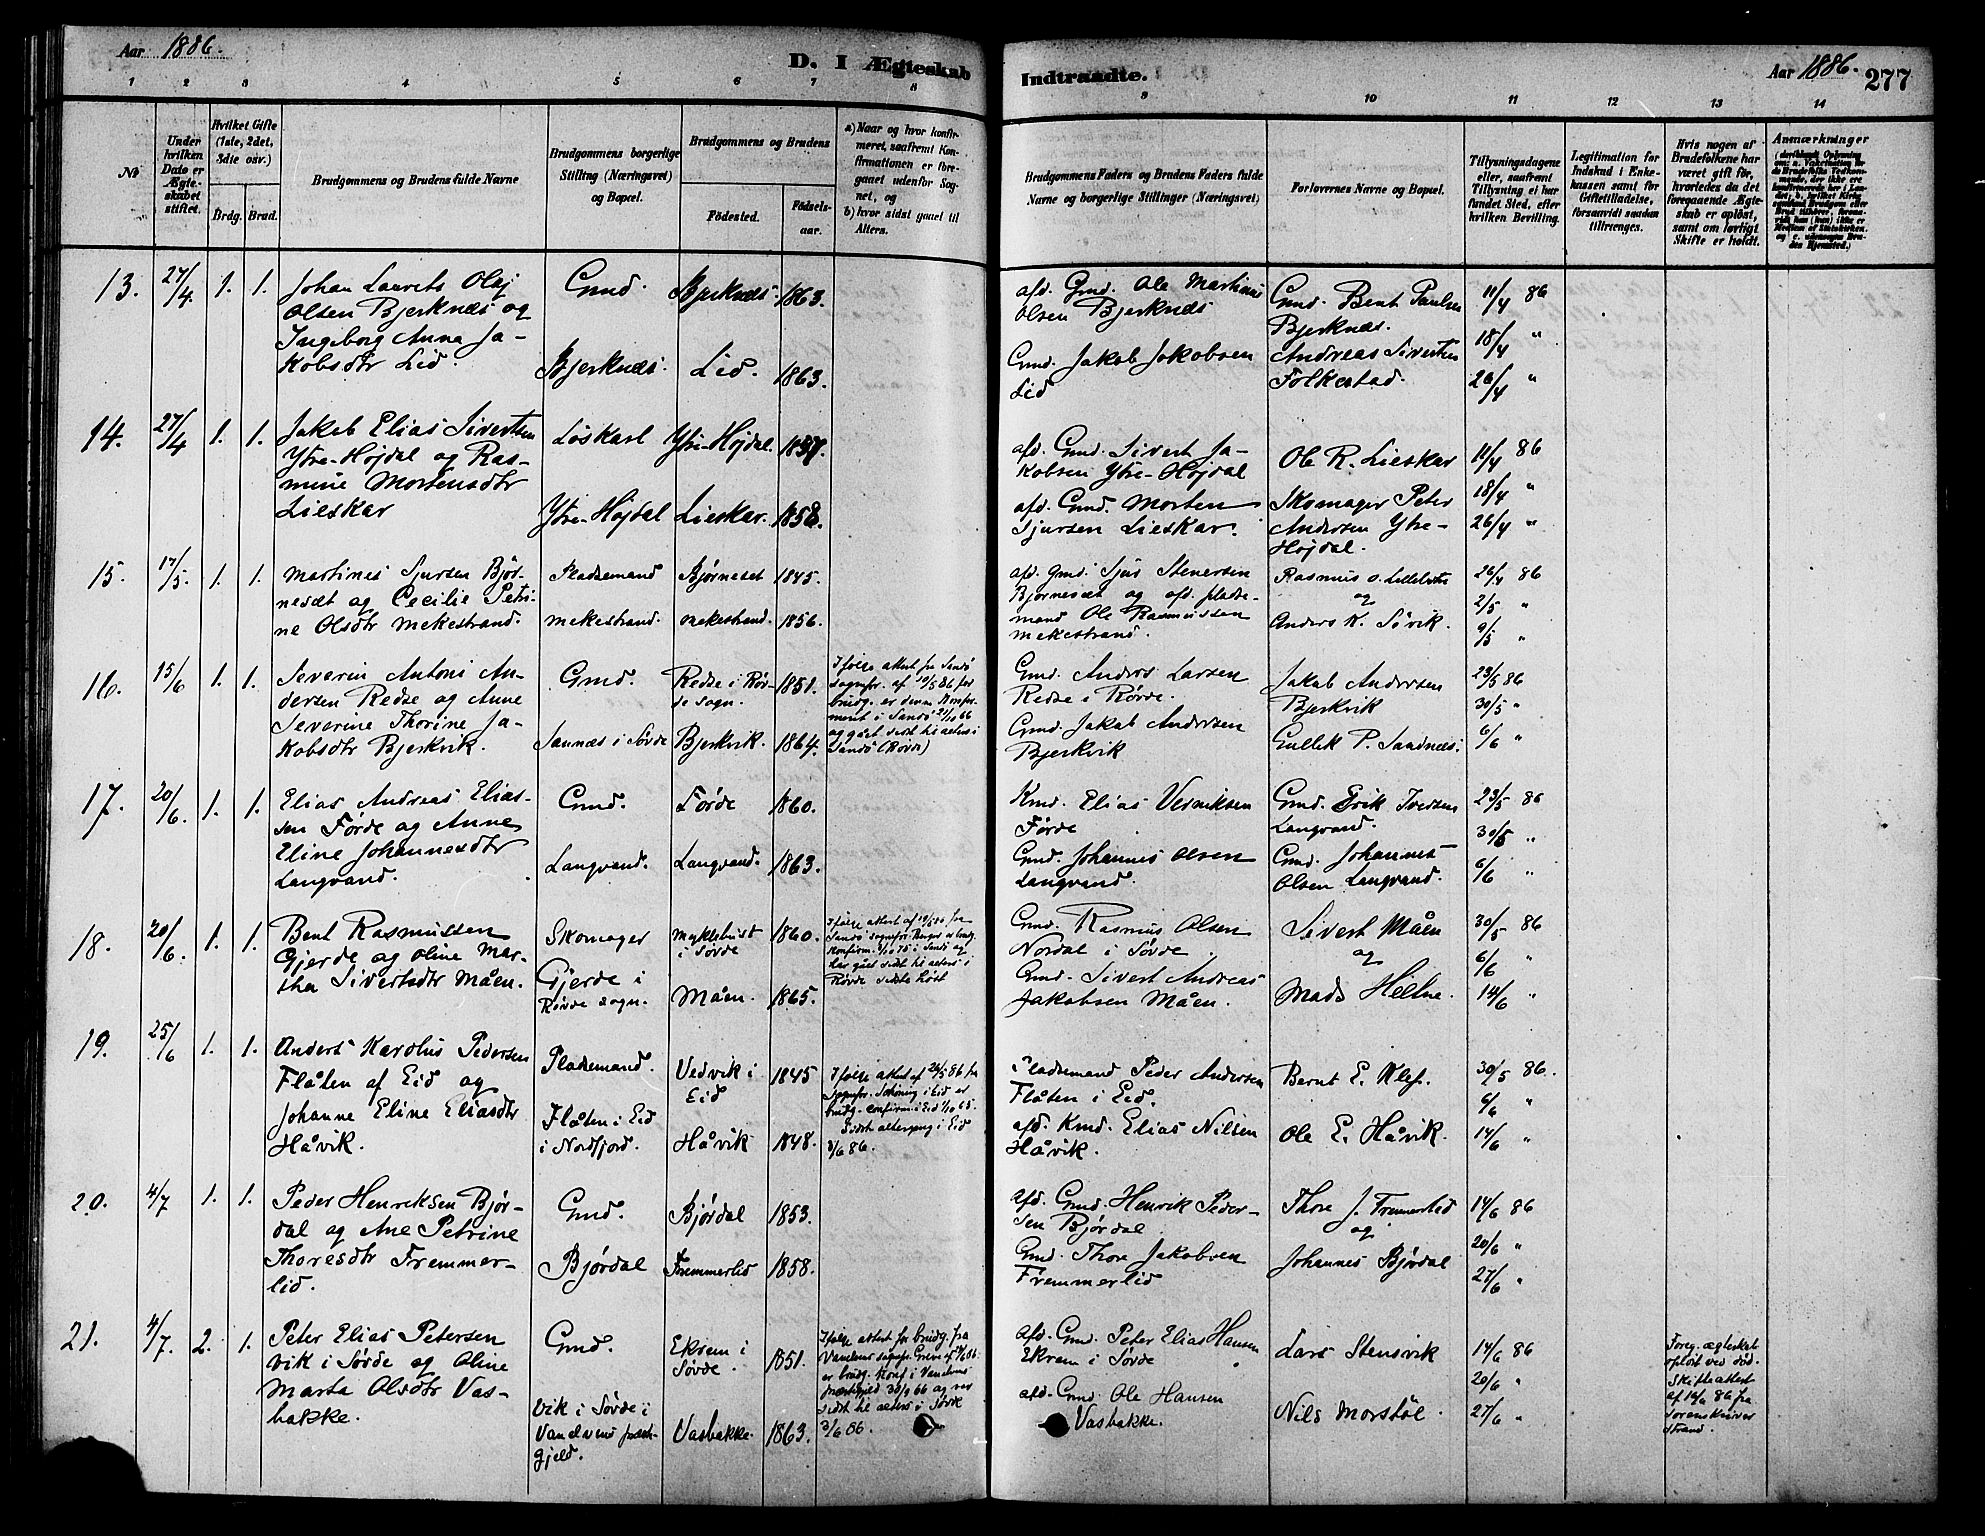 Aar 1886.
D. I Ægteskab
Indtraadte.
Aar 1886.
277
1 2 3 4 5 6 7 8 9 10 11 12 13 14
No
Under
hvilken
Dato er
Ægte-
skabet
stiftet.
Hvilket Gifte
(1ste, 2det,
3die osv.)
Brdg. Brud.
Brudgommens og Brudens fulde Navne
Brudgommens borgerlige
Stilling (Næringsvei)
og Bopæl.
Brudgommens og Brudens
Fødested.
Fødsels-
aar.
a) Naar og hvor konfir-
meret, saafremt Kon-
firmationen er fore-
gaaet udenfor Sog-
net, og
b) hvor sidst gaaet til
Alters.
Brudgommens Faders og Brudens Faders fulde
Navne og borgerlige Stillinger (Næringsvei)
Forlovernes Navne og Bopæl.
Tillysningsdagene
eller, saafremt
Tillysning ei har
fundet Sted, efter
hvilken Bevilling.
Legitimation for
Indskud i Enke-
kassen samt for
Giftetilladelse,
forsaavidt saadan
tiltrænges.
Hvis nogen af
Brudefolkene har
været gift før,
hvorledes da det
foregaaende Ægte-
skab er opløst,
samt om lovligt
Skifte er holdt.
Anmærkninger
13. 27/4. 1. 1.
Johan Laurits Olaj
Olsen Bjerknæs og
Ingeborg Anna Ja-
kobsdtr Lid.
Gmd.
Bjerknæs.
Bjerknæs 1863.
Lid. 1863.
afd. Gmd. Ole Martinus
Olsen Bjerknæs
Gmd. Jakob Jakobsen
Lid
Gmd. Bent Paulsen
Bjerknæs.
Andreas Sivertsen
Folkestad.
11/4 86
18/4 "
26/4 "
14. 27/4 1. 1.
Jakob Elias Sivertsen
Ytre-Højdal og Ras-
mine Mortensdtr
Lieskar
Løskarl
Ytre-Højdal
Ytre-Højdal. 1837.
Lieskar. 1858.
afd. Gmd. Sivert Ja-
kobsen Ytre-Højdal
afd. Gmd. Morten
Sjursen Lieskar.
Ole R. Lieskar
Skomager Peter
Andersen Ytre-
Højdal.
11/4 86
18/4 "
26/4 "
15. 17/5. 1. 1.
Martines Sjursen Bjør-
nesæt og Cecilie Petri-
ne Olsdtr Mekestrand.
Pladsemand
Mekestrand.
Bjørneset 1845.
Mekestrand. 1856.
afd. Gmd. Sjur Stenersen
Bjørnesæt og afd. plads-
mand Ole Rasmussen
Mekestrand.
Rasmus O. Lillebø
og
Anders K. Søvik.
26/4 86
2/5 "
9/5 "
16. 15/6 1. 1.
Severin Antoni An-
dersen Redse og Anne
Severine Thorine Ja-
kobsdtr Bjerkvik.
Gmd.
Sannæs i Sørde
Redse i Røv-
de sogn. 1851.
Bjerkvik. 1864.
Ifølge attest fra Sandø
sognpr. af 19/5 86 for
brudg. er denne konfir-
meret i Sandø 21/10 66
og gået sidst til alters i
Sandø (Røvde)
Gmd. Anders Larsen
Redse i Rørde.
Gmd. Jakob Andersen
Bjerkvik
Jakob Andersen
Bjerkvik
Gullik P. Sandnæs.
23/5 86
30/5 "
6/6 "
17. 20/6. 1. 1.
Elias Andreas Elias-
sen Førde og Anne
Eline Johannesdtr
Langvand.
Gmd.
Langvand.
Førde 1860.
Langvand. 1863.
Kmd. Elias Verniksen
Førde
Gmd. Johannes Olsen
Langvand.
Gmd. Erik Iversen
Langvand.
Gmd. Johannes
Olsen Langvand.
23/5 86
30/5 "
6/6 "
18. 20/6. 1. 1.
Bent Rasmussen
Gjerde og Oline Mar-
tha Sivertsdtr Måen.
Skomager
Gjerde i
Røvde sogn.
Myklebust
i Sørde 1860.
Måen. 1865.
Gmd. Rasmus Olsen
Nordal i Sørde
Gmd. Sivert Andreas
Jakobsen Måen.
Sivert Måen
og
Mads Heltne.
30/5 86
6/6 "
14/6 "
19. 25/6 1. 1.
Anders Karolus Pedersen
Flåten af Eid og
Johanne Eline Eliasdtr
Håvik.
Pladsemand.
Flåten i Eid
i Nordfjord.
Vedvik i
Eid 1845
Håvik 1848.
Ifølge attest af 24/5 86 fra
Sognepr. i Eid er
brudg. confirm i Eid 1/10 65.
Sidst altergang i Eid
3/6 86.
Pladsemand Peder Andersen
Flåten i Eid.
afd. Kmd. Elias Nilsen
Håvik.
Bernt E. Klef.
Ole E. Håvik.
30/5 86.
6/6 "
14/6 "
20. 4/7 1. 1.
Peder Henriksen Bjør-
dal og Ane Petrine
Thoresdtr Fremmer-
lid.
Gmd.
Bjørdal
Bjørdal 1853.
Fremmerlid 1858.
afd. Gmd. Henrik Peder-
sen Bjørdal
Gmd. Thore Jakobsen
Fremmerlid
Thore J. Fremmerlid
og
Johannes Bjørdal
14/6 86
20/6 "
27/6 "
21. 4/7. 2. 1.
Peter Elias Petersen
Vik i Sørde og Oline
Marta Olsdtr Vas-
bakke.
Gmd.
Vik i Sørde i
Vanelvens præste-
gjeld.
Ekrem i
Sørde 1851.
Vasbakke. 1863.
Ifølge attest for brudg. fra
Vanelvens sognepr.
er brudg. konf i Vanelvens
præstegjeld 30/9 66 og var
sidst til alters i Sørde
3/6 86.
afd. Gmd. Peter Elias Hansen
Ekrem i Sørde
afd. Gmd Ole Hansen
Vasbakke.
Lars Stensvik
Nils Morstøl.
14/6 86
20/6 "
27/6 "
Foreg. ægteskab
opløst ved død.
Skifteattest
af 14/6 86 fra
Sorenskriver
Strand.